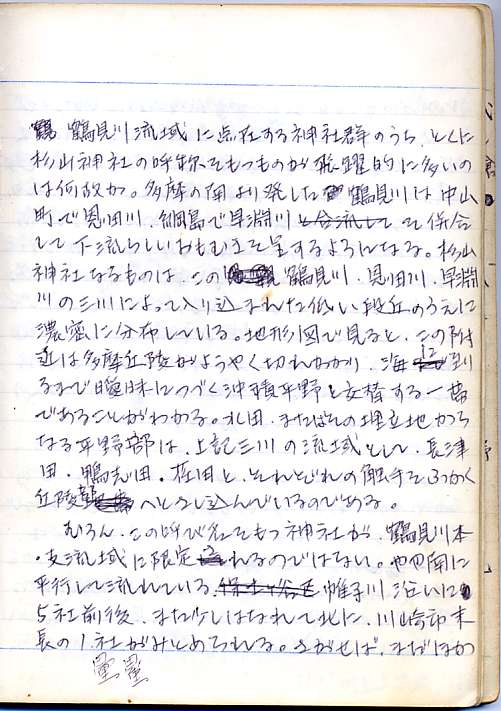 鶴見川流域に点在する神社群のうち、とくに
杉山神社の呼称をもつものが飛躍的に多いの
は何故か。多摩の南より発した鶴見川は中山
町で恩田川、綱島で早淵川を併合
して下流らしいおもむきを呈するようになる。杉山
神社なるものは、この鶴見川・恩田川・早淵
川の三川によって入り込まれた低い段丘のうえに
濃密に分布している。地形図で見ると、この附
近は多摩丘陵がようやく切れかかり、海に到
るまで曖昧につづく沖積平野と交替する一帯
であることがわかる。水田、またはその埋立地から
なる平野部は、上記三川の流域として、長津
田・鴨志田・荏田と、それぞれの触手をふかく
丘陵部へとさし込んでいるのである。
むろん、この呼び名をもつ神社が、鶴見川本
・支流域に限定されるのではない。やや南に
平行して流れている、帷子川沿いに
5社前後、まだ少しはなれて北に、川崎市末
長の1社がみとめられる。さがせば、まだほか